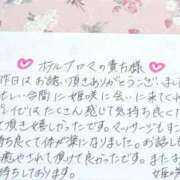 ホテルプロマの貴方様
昨日はお誘い頂きありがとうございました
忙しい合間に姫咲に会いに来てくれ
プレイではたくさん感じて気持ち良く
頂き嬉しかったです。マッサージもすご
持ち良くて体が楽になりました。お話も
癒やされて頂けて良かったです。また
待ちしております。 姫咲